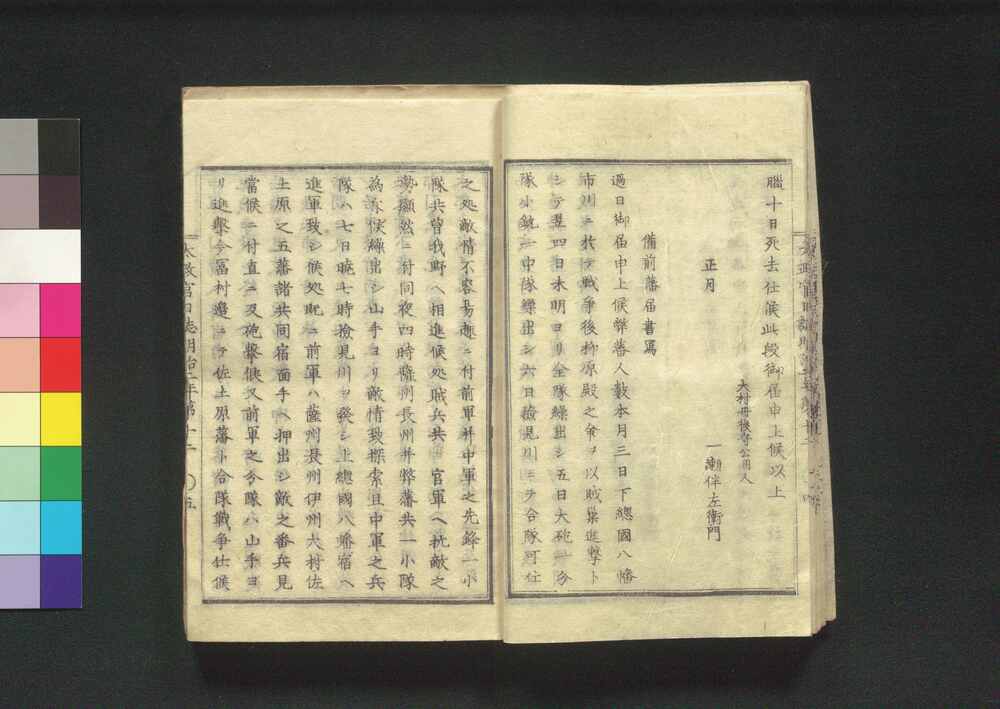 臘十日死去仕候此段御届申上候以上
大村丹後守公用人
一瀬伴左衛門
正月
備前藩届書写
過日御届申上候弊藩人数本月三日下總國八幡
市川ニ於テ戦争後柳原殿之命ヲ以賊巣進撃ト
シテ翌四日未明ヨリ全隊繰出シ五日大砲一分
隊小銃一中隊繰出シ六日検見川ニテ合隊可仕
之処敵情不容易趣ニ付前軍并中軍之先鋒一小
隊共曽我野ヘ相進候処賊兵共 官軍ヘ抗敵之
勢顕然ニ付同夜四時薩州長州并弊藩共一小隊
為斥候繰出シ山手ヨリ敵情致探索且中軍之兵
隊ハ七日暁七時検見川ヲ發シ上總國八幡宿ヘ
進軍致シ候処既ニ前軍ハ薩州長州伊州大村佐
土原之五藩諸共同宿面手ヘ押出シ敵之番兵見
當候ニ付直ニ及砲撃候又前軍之分隊ハ山手ヨ
リ進撃今冨村邉ニテ佐土原藩ト合隊戦争仕候
太政官日誌明治二年第十二 〇五